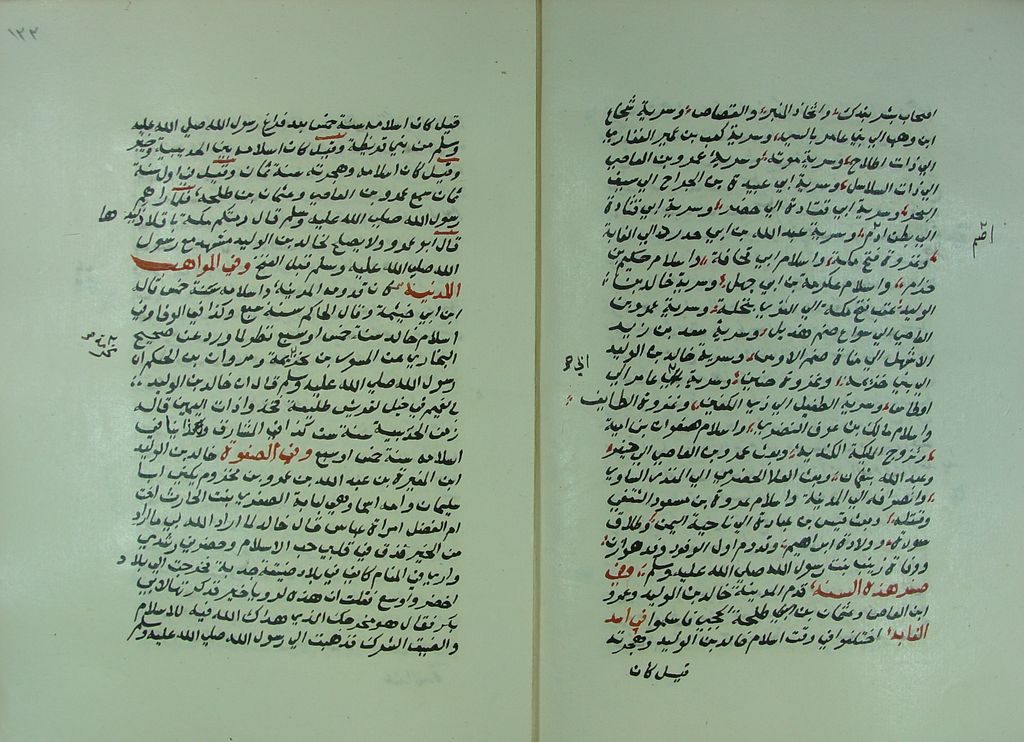 اصحاب بشر بفدك واتخاذ المنبر والقصاص وسرية شجاع
ابن وهب الى بني عامر بالسي وسرية كعب بن عمير الغفاري
الى ذات اطلاح وسرية موته وسرية عمرو بن العاصي
الى ذات السلاسل وسرية ابي عبيدة بن الجراح الى سيف
البحر وسرية ابي قتادة الى خضره وسرية ابي قتادة
الى بطن اضم وسرية عبد الله بن ابي حدرد الى الغابة
وغزوة فتح مكة واسلام ابي قحافة واسلام حكيم بن
حزام واسلام عكرمة بن ابي جهل وسرية خالد بن
الوليد عقب فتح مكة الى العزى بنخلة وسرية عمرو بن
العاصي الى سواع صنم هذيل وسرية سعد بن زيد
الاشهلي الى مناة صنم الاوس وسرية خالد بن الوليد
الى بني خزيمة وغزوة حنين وسرية ابي عامر الى
اوطاس وسرية الطفيل الى ذي الكفين وغزوة الطايف
واسلام مالك بن عوف النضري واسلام صفوان بن امية
وتزوج المليكة الكندية وبعث عمرو بن العاصي الى جيفر
وعبد الله بعمان وبعث العلا الحضرمي الى المنذر بن ساوي
وانصرافه الى المدينة واسلام عروة بن مسعود الثقفي
وقتله وبعث قيس بن عبادة الى ناحية اليمن وطلاق
سودة وولادة ابراهيم وقدوم اول الوفود وفد هوازن
ووفاة زينب بنت رسول الله صلى الله عليه وسلم وفي
صفر هذه السنة قدم المدينة خالد بن الوليد وعمرو
ابن العاص وعثمان بن ابي طلحة الحجبي فاسلموا في اسد
الغابة اختلفوا في وقت اسلام خالد بن الوليد وهجرته
قيل كان
اضم
١٢٢
قيل كان اسلامه سنة خمس بعد فراغ رسول الله صلى الله عليه
وسلم من بني قريظة وقيل كان اسلامه بين الحديبية وخيبر
وقيل كان اسلامه وهجرته سنة ثمان وقيل في اول سنة
ثمان مع عمرو بن العاصي وعثمان بن طلحة فلما راهم
رسول الله صلى الله عليه وسلم قال رمتكم مكة بافلاذ كبدها
قال ابو عمرو ولا يصح لخالد بن الوليد مشهد مع رسول
الله صلى الله عليه وسلم قبل الفتح وفي المواهب
اللدنية كان قدومه المدينة واسلامه سنة خمس قاله
ابن ابي خيثمة وقال الحاكم سنة سبع وكذا في الوفا وفي
اسلام خالد سنة خمس او سبع نظر لما ورد عن صحيح
البخاري عن المسور بن مخرمة ومروان بن الحكم ان
رسول الله صلى الله عليه وسلم قال ان خالد بن الوليد
بالغميم في خيل لقريش طليعة فخذوا ذات اليمين قاله
زمن الحديبية سنة ست كذا في المشارق وهذا ينافي
اسلامه سنة خمس او سبع وفي الصفوة خالد بن الوليد
ابن المغيرة بن عبد الله بن عمرو بن مخزوم يكنى ابا
سليمان وامه اسما وهي لبابة الصغرى بنت الحارث اخت
ام الفضل امراة عباس قال خالد لما اراد الله بي ما اراد
من الخير قذف في قلبي حب الاسلام وحضرني رشدي
واريت في المنام كاني في بلاد ضيقة جدبة فخرجت الى بلاد
اخضر واوسع فقلت ان هذه لرويا خير فذكرتها لابي
بكر فقال هو مخرجك الذي هداك الله فيه للاسلام
والضيق الشرك فذهبت الى رسول الله صلى الله عليه وسلم